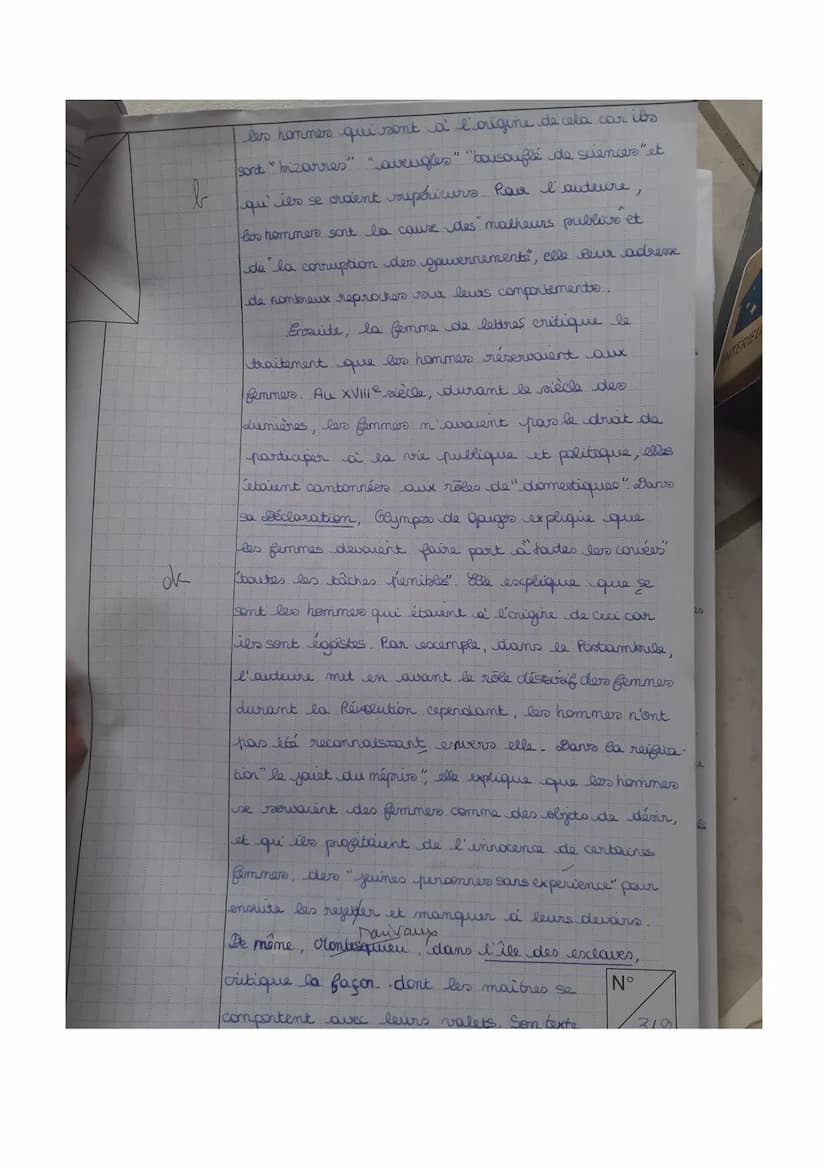 les hommes qui sont à l'origine de cela car ils
sont "bizarres" "aveugles" "bousouflé de sciences" et
b
qu'ils se croient supérieurs. Pour l'auteure,
les hommes sont la cause des "malheurs publics" et
de "la corruption des gouvernements", elle leur adresse
de nombreux reproches sur leurs comportements.
Ensuite, la femme de lettres critique le
traitement que les hommes réservaient aux
femmes. Au XVIIIe siècle, durant le siècle des
Lumières, les femmes n'avaient pas le droit de
participer à la vie publique et politique, elles
étaient cantonnées aux rôles de "domestiques". Dans
sa Déclaration, Olympes de Gouges explique que
les femmes devaient faire part à "toutes les corvées"
"toutes les tâches pénibles". Elle explique que se
sont les hommes qui étaient à l'origine de ceci car
ils sont égoïstes. Par exemple, dans le Postambule,
l'auteure met en avant le rôle des femmes
durant la Révolution cependant, les hommes n'ont
pas été reconnaissant envers elle. Dans la
"le jouet du mépris", elle explique que les hommes
se servaient des femmes comme des objets de désir,
et qu'ils profitaient de l'innocence de certaines
femmes, des "jeunes personnes sans experience" pour
ensuite les rejetter et manquer à leurs devoirs.
Marivaux
De même, Montesquieu, dans l'île des esclaves,
critique la façon dont les maîtres se
N°
comportent avec leurs valets. Son texte
3/9
INTERIEU